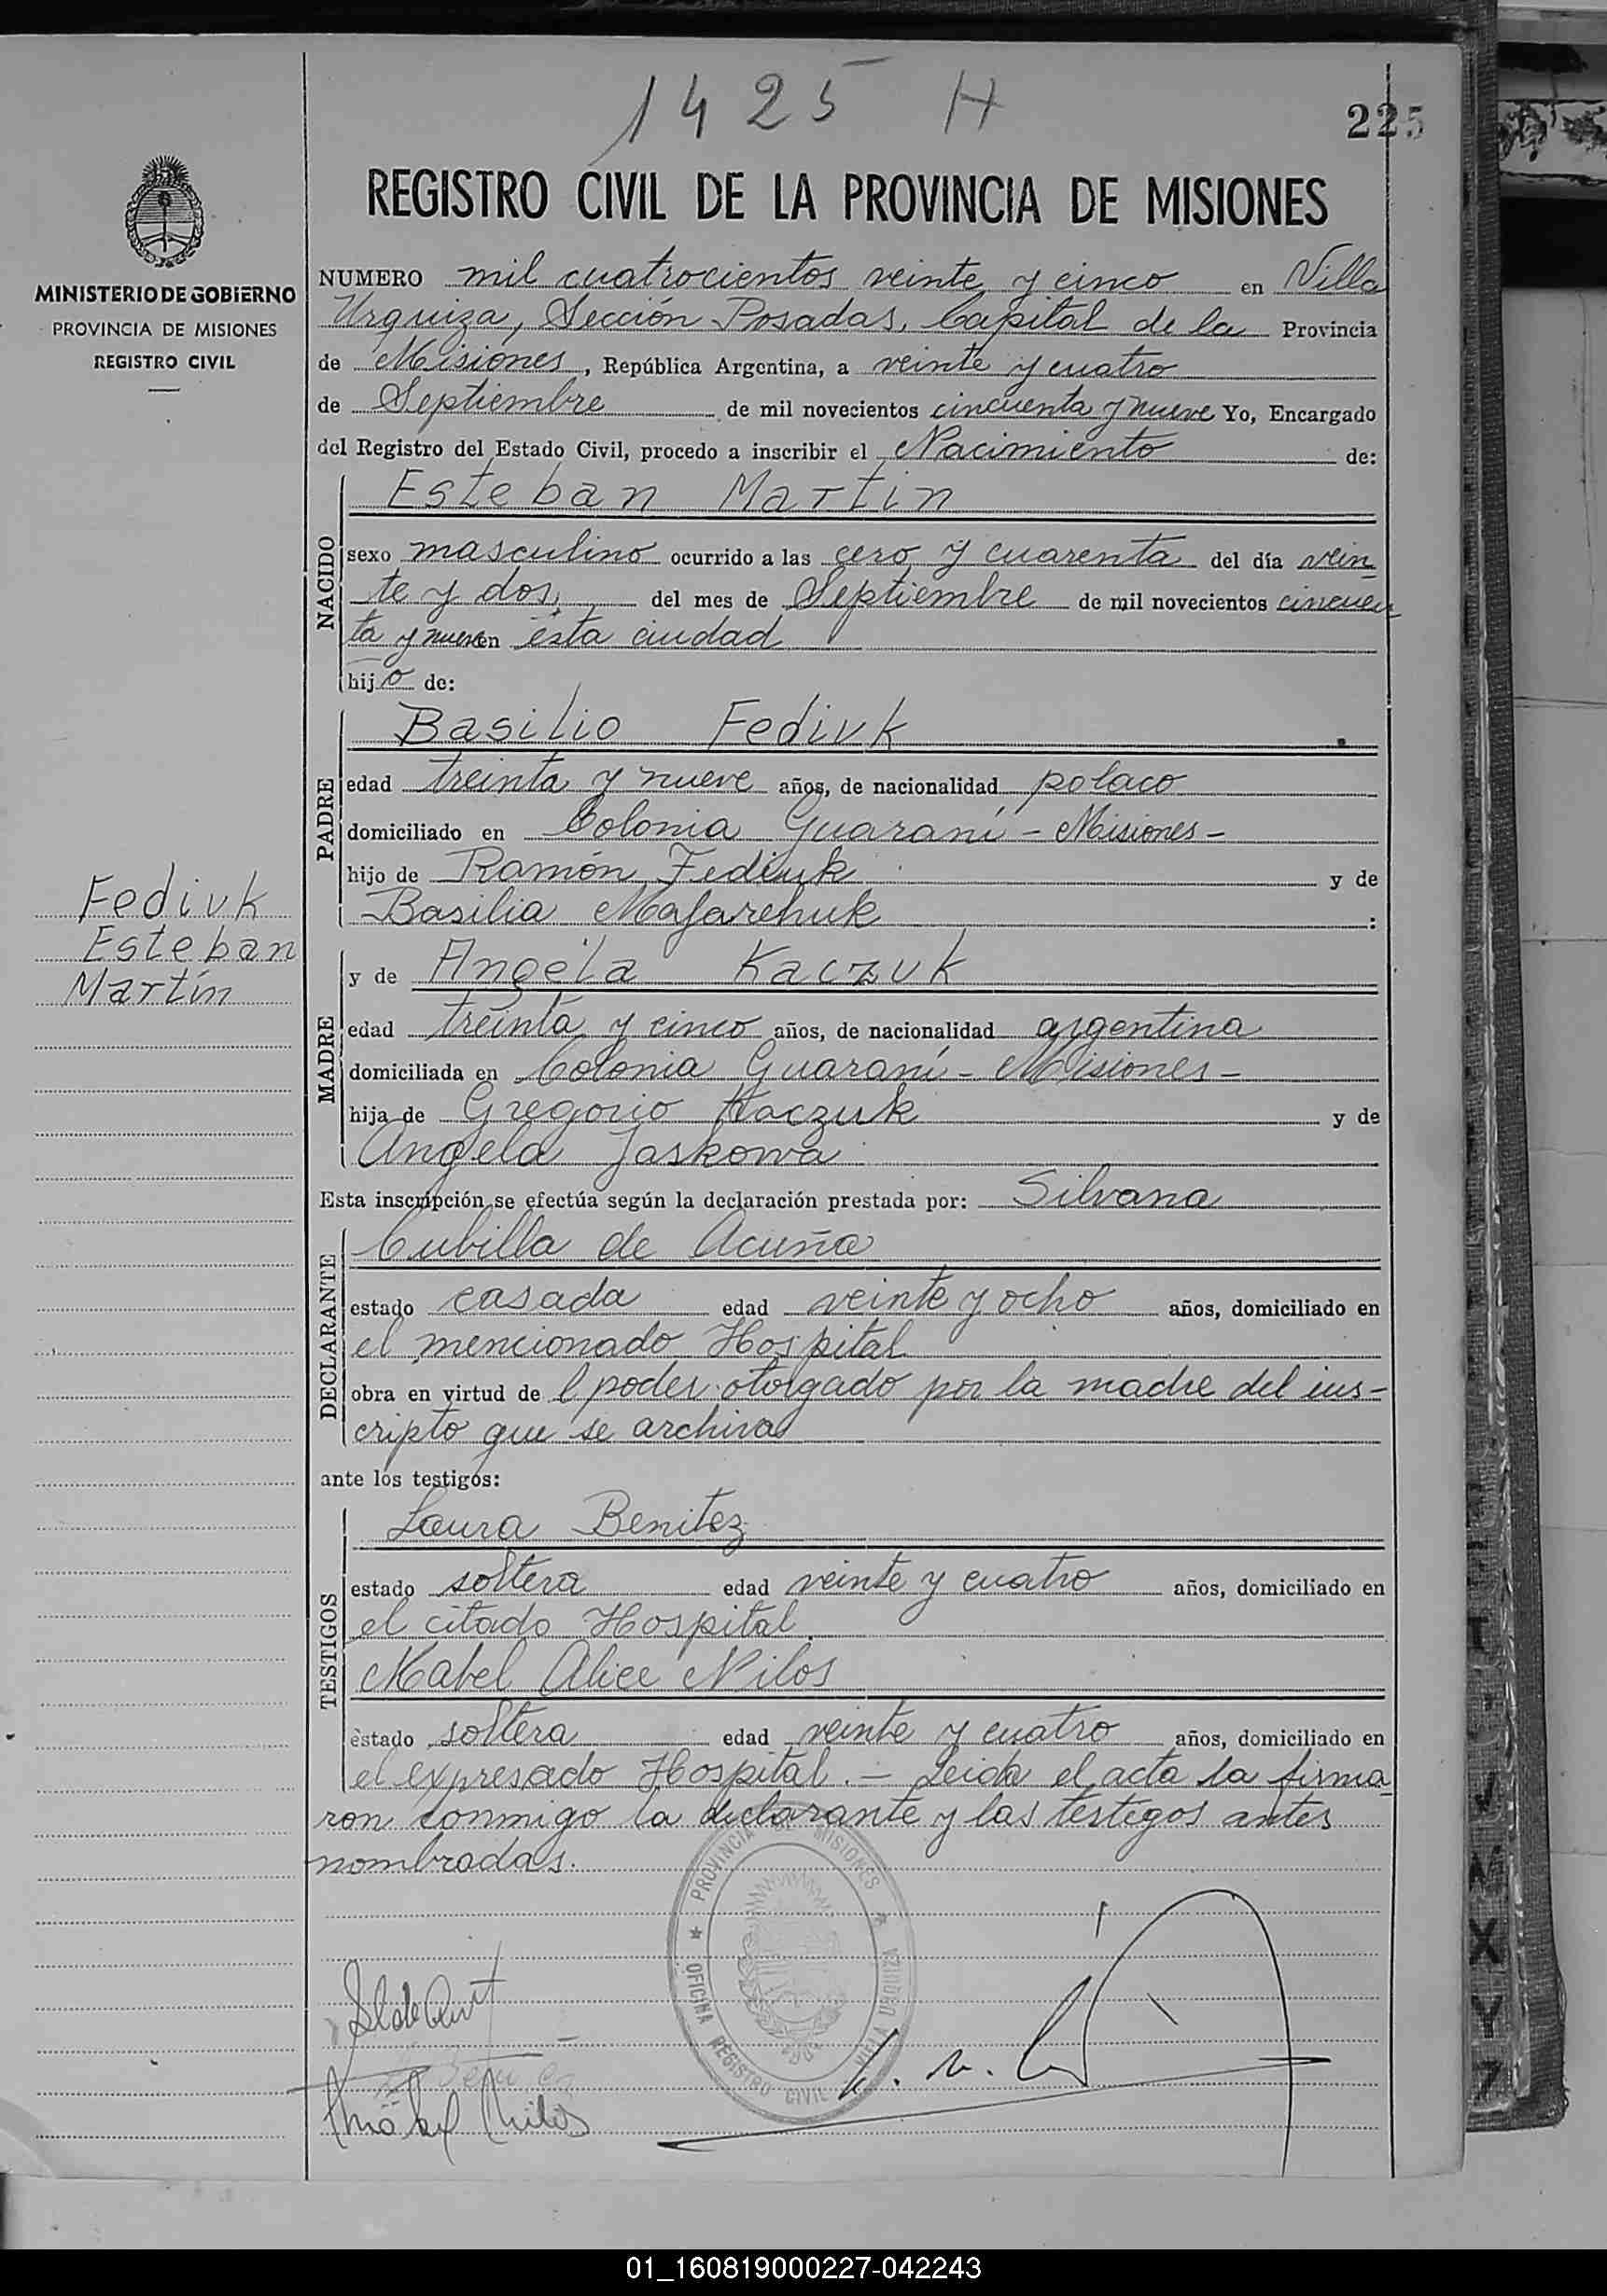 1425 H
225
REGISTRO CIVIL DE LA PROVINCIA DE MISIONES
MINISTERIO DE GOBIERNO
PROVINCIA DE MISIONES
REGISTRO CIVIL
NUMERO mil cuatrocientos veinte y cinco en Villa
Urquiza, Sección Posadas, Capital de la Provincia
de Misiones, República Argentina, a veinte y cuatro
de Septiembre de mil novecientos cincuenta y nueve Yo, Encargado
del Registro del Estado Civil, procedo a inscribir el Nacimiento de:
NACIDO
Esteban Martin
sexo masculino ocurrido a las cero y cuarenta del día vein
te y dos, del mes de Septiembre de mil novecientos cincuen
ta y nueve en ésta ciudad
hijo de:
PADRE
Basilio Fediuk
edad treinta y nueve años, de nacionalidad polaco
domiciliado en Colonia Guaraní - Misiones -
hijo de Ramón Fediuk y de
Basilia :
Fediuk
Esteban
Martín
MADRE
y de Angela Kaczuk
edad treinta y cinco años, de nacionalidad argentina
domiciliada en Colonia Guaraní - Misiones -
hija de Gregorio Kaczuk y de
Angela Jaskowa
Esta inscripción se efectúa según la declaración prestada por: Silvana
DECLARANTE
Cubilla de Acuña
estado casada edad veinte y ocho años, domiciliado en
el mencionado Hospital
obra en virtud de l poder otorgado por la madre del ins-
cripto que se archiva
ante los testigos:
TESTIGOS
Laura Benitez
estado soltera edad veinte y cuatro años, domiciliado en
el citado Hospital.
Mabel Alice Nilos
estado soltera edad veinte y cuatro años, domiciliado en
el expresado Hospital. - Leida el acta la firma
ron conmigo la declarante y las testigos antes
nombradas.
PROVINCIA MISIONES
OFICINA REGISTRO CIVIL VILLA URQUIZA
01_160819000227-042243